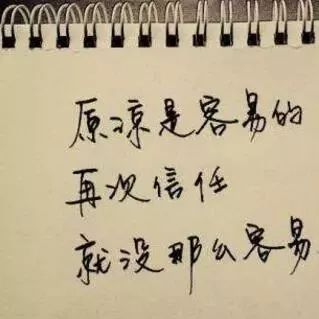 原凉是容易的
再次信任
就没那么容易